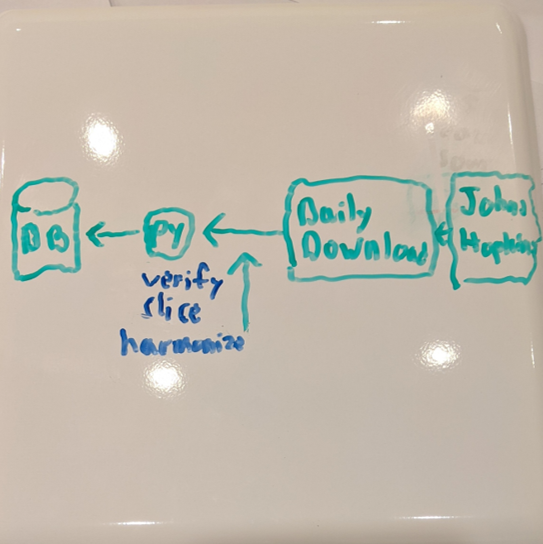 DB
PY
verify
slice
harmonize
Daily
Download
Johns
Hopkins